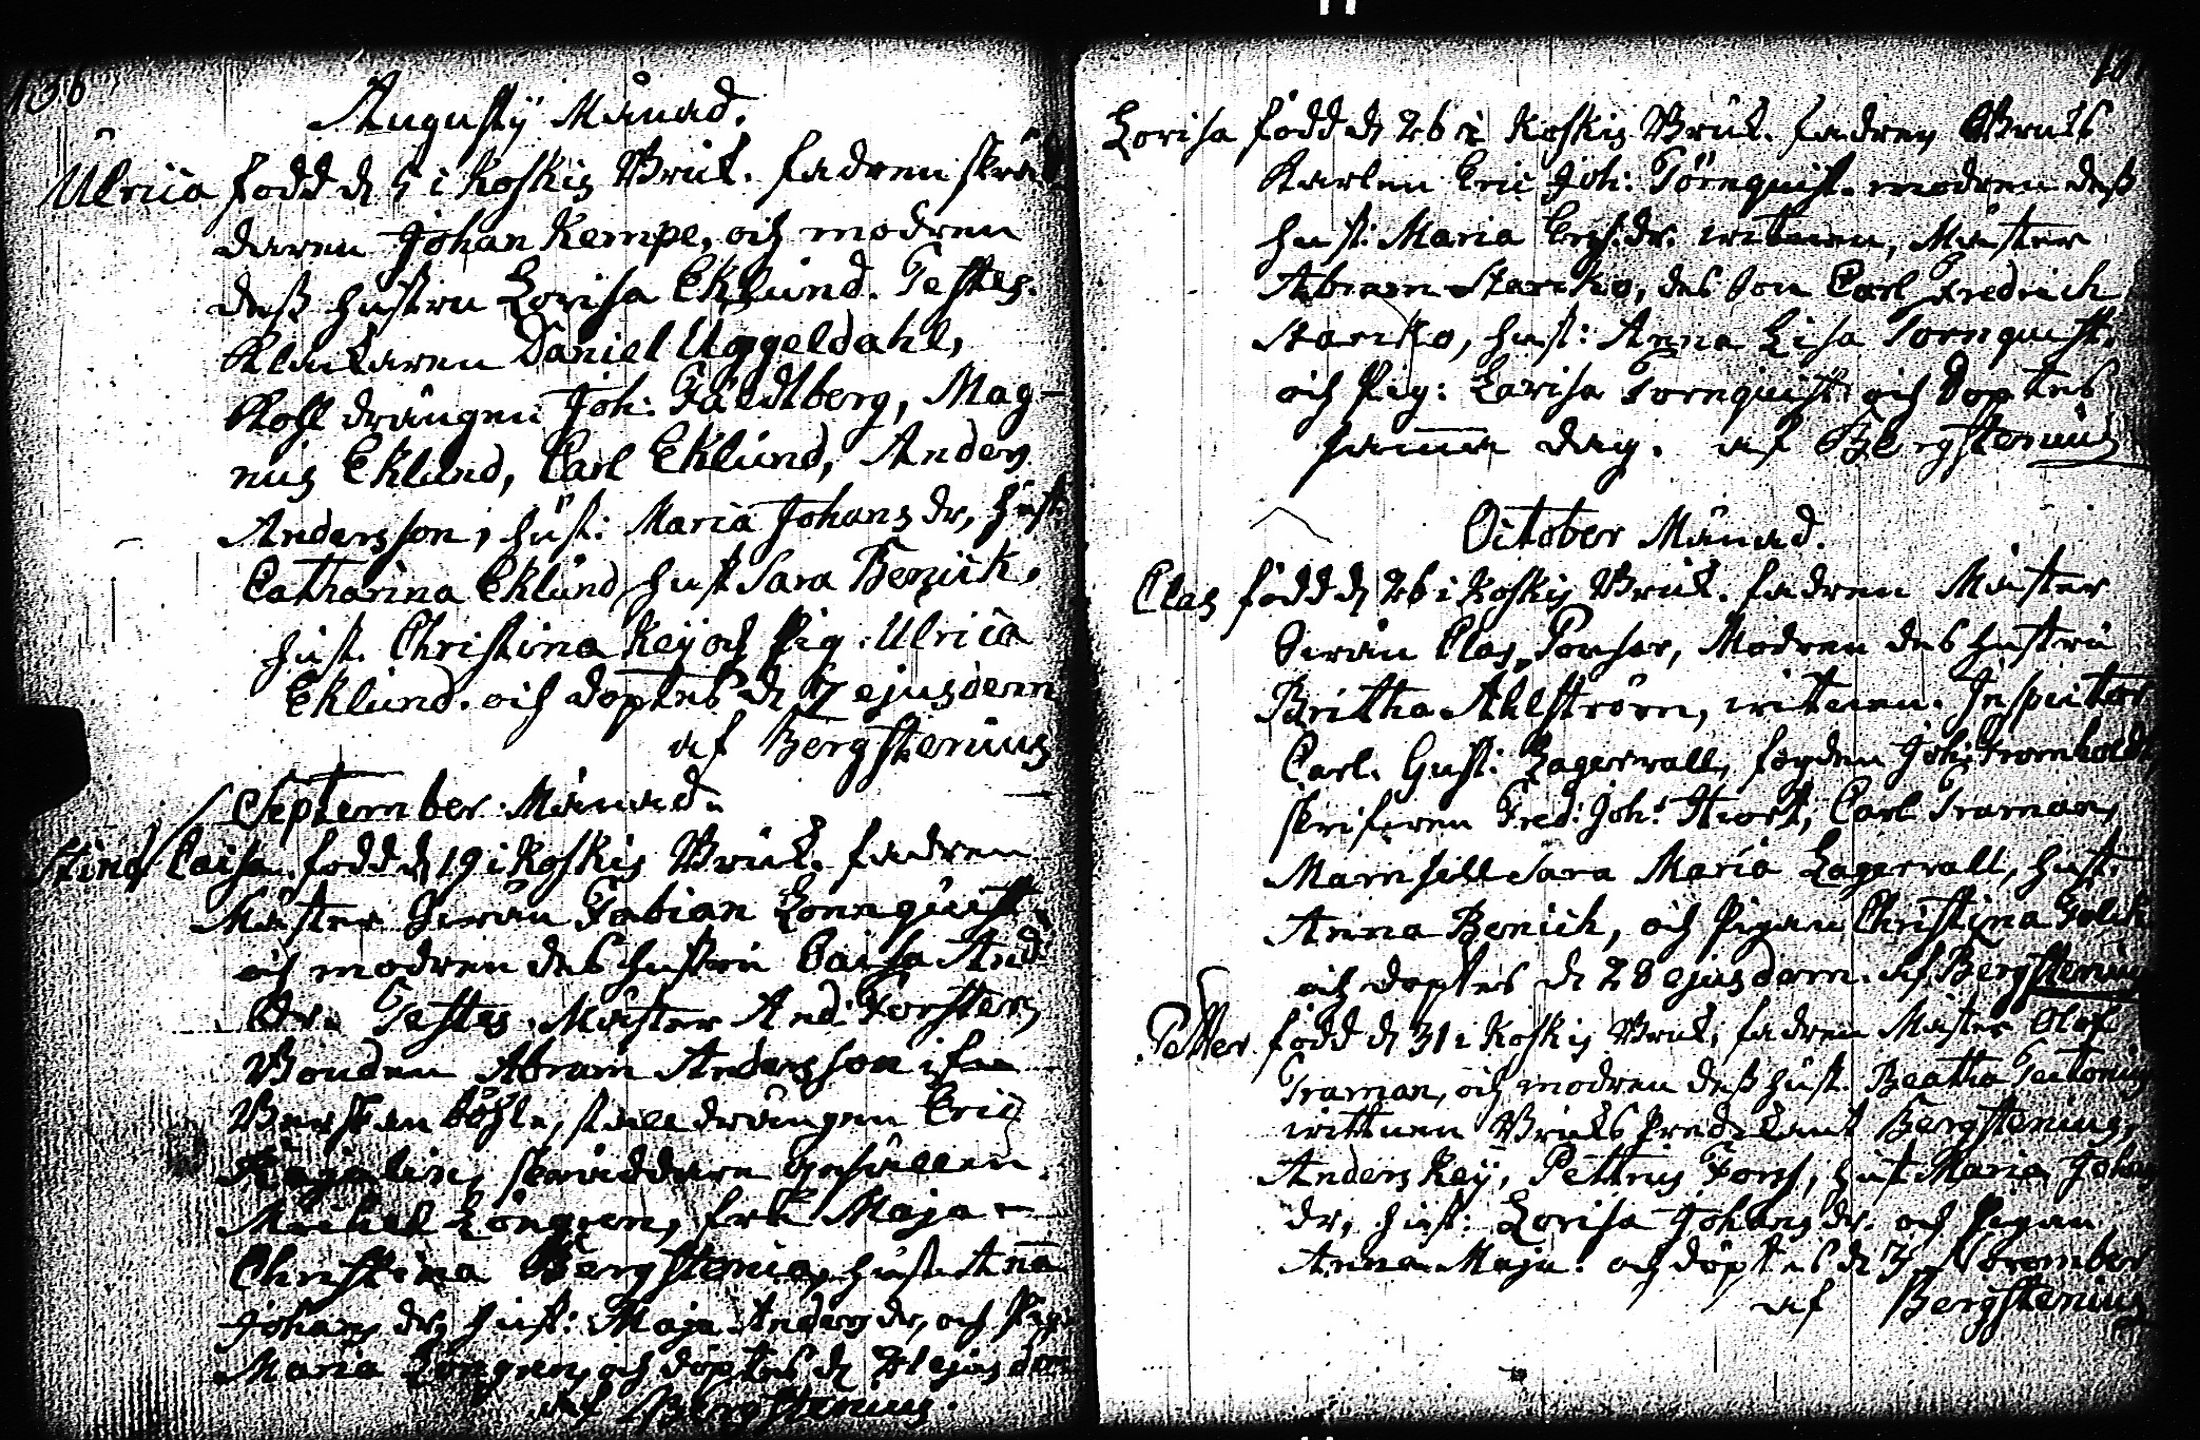 136
Augusty Månad.
Ulrica född d 5 i Koskis Bruk. fadren skräd
daren Johan Kempe, och modren
deß hustru Lovisa Eklund. Testes.
Klockaren Daniel Uggeldahl,
Kohl drängen Joh: Fäldtberg, Mag-
nus Eklund, Carl Eklund, Anders
Andersson, hust: Maria Johans dr, hust
Catharina Eklund, hust Sara Benick,
hust. Christina Keij och Pig. Ulrica
Eklund. och döptes d 7 ejusdem
af Bergstenius
September Månad.
Stina Caisa. född d 19 i Koskis Bruk. fadren
Mäster Fabian Lönnquist,
och modren des hustru Caisa And
dr. Testes. Mäster And: Forsten,
Bonden Abram Andersson ifrån
stalldrängen Eric
skräddare gesällen
Michel Löngren, frk Maja
Christina Bergstenia, hust Anna
Johans dr, hust: Maja Anders dr, och Pig.
Maria Löngren, och döptes d 21 ejusdem
af Bergstenius.
Lovisa född d 26 i Koskis Bruk. fadren Bruks
Karlen Eric Joh: Törnquist. modren deß
hust: Maria dr. witnen, Mäster
Abram Starcko, des son Carl Fredrich
Starcko, hust: Anna Lisa Törnquist.
och Pig: Lovisa Törnquist och döptes
samma dag. af Bergstenius
October Månad.
Clas född d 26 i Koskis Bruk. fadren Mäster
Clas Ponsar, Modren des hustru
Britha Ahlström, witnen. Inspector
Carl. Gust: Lagervall, fogden Joh: Fromholdt,
skrifaren Fred: Joh: Hiort, Carl Traman,
Mamsell Sara Maria Lagervall, hust.
Anna Benick, och Pigan Christina
och döptes d 28 ejusdem. af Bergstenius
Petter född d 31 i Koskis Bruk, fadren Mäster Olof
Traman, och modren deß hust. Beatha
wittnen Bruks Predikant Bergstenius,
Anders Keij, Pettrus Forss, hust Maria Johans
dr, hust: Lovisa Johans dr. och Pigan
Anna Maja. och döptes d 3 November
af Bergstenius